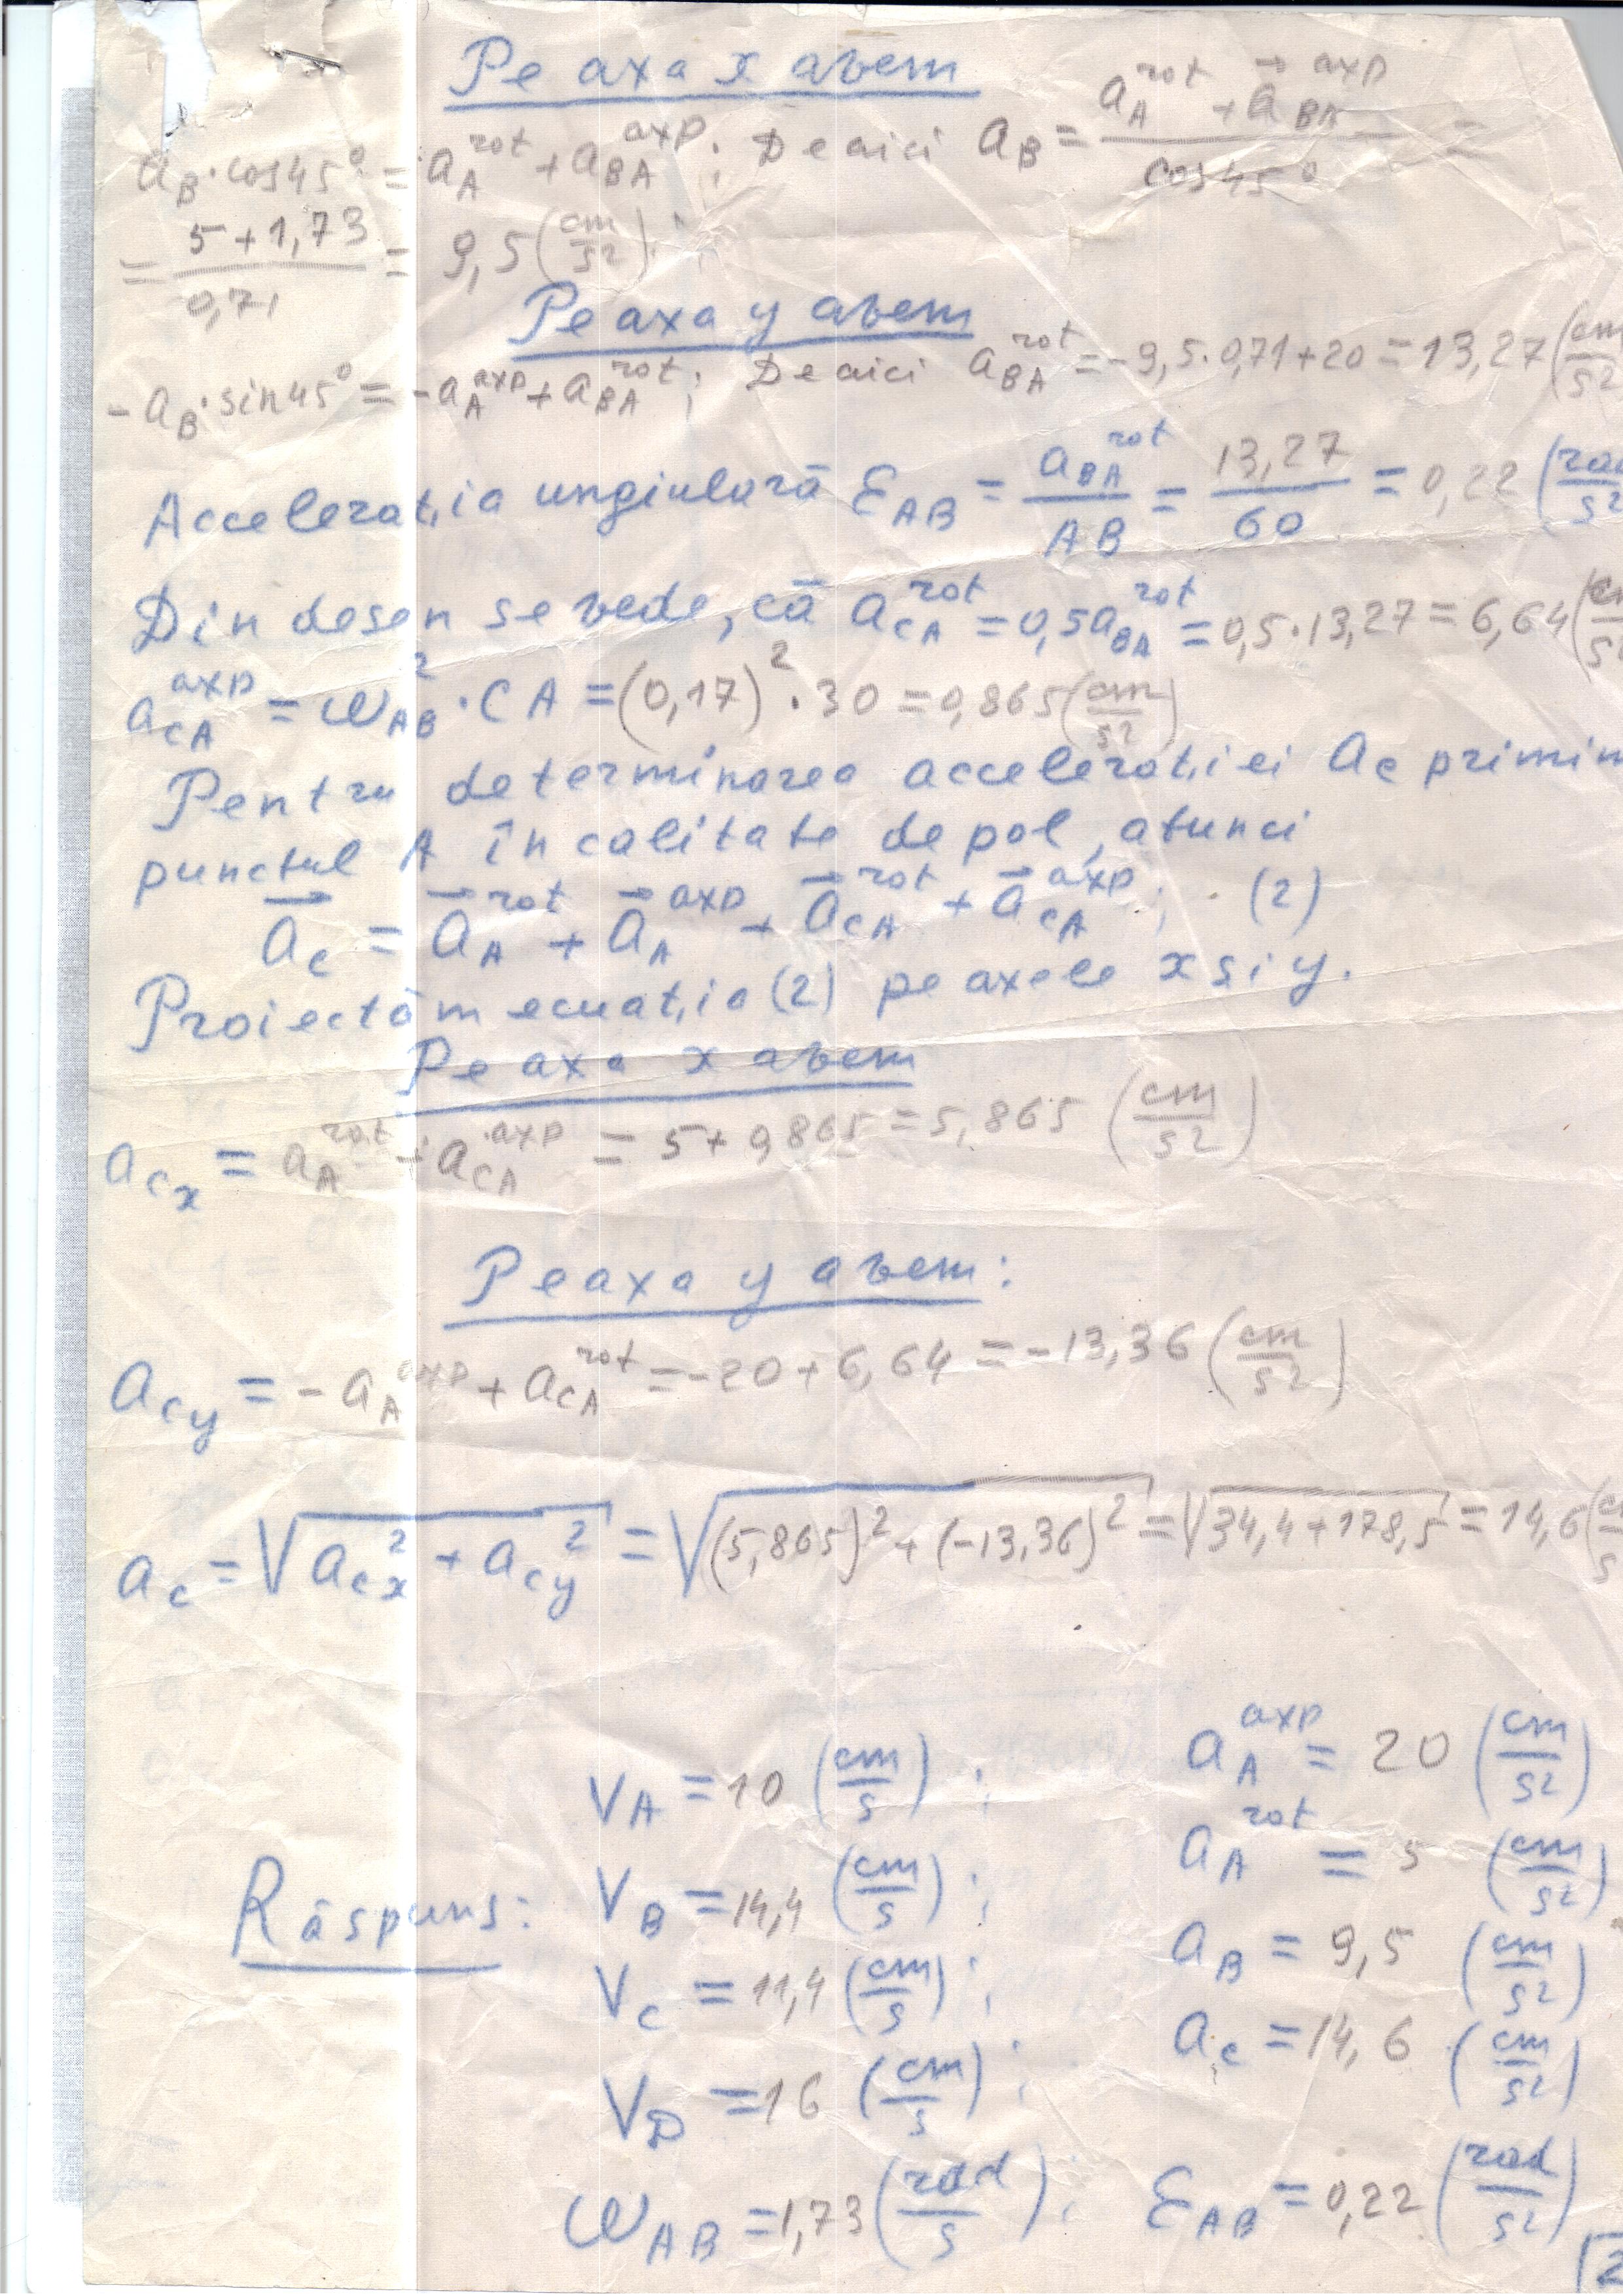 Pe axa x avem
a_B·cos45° = a_A^rot + a_BA^axp; De aici a_B = (a_A^rot + a⃗_BA^axp)/cos45° =
= (5+1,73)/0,71 = 9,5 (cm/s²);
Pe axa y avem
-a_B·sin45° = -a_A^axp + a_BA^rot; De aici a_BA^rot = -9,5·0,71+20 = 13,27 (cm/s²
Accelerația unghiulară ε_AB = a_BA^rot/AB = 13,27/60 = 0,22 (rad/s²
Din desen se vede, că a_CA^rot = 0,5a_BA^rot = 0,5·13,27 = 6,64 (cm/s²
a_CA^axp = ω_AB²·CA = (0,17)²·30 = 0,865 (cm/s²)
Pentru determinarea accelerației a_c primim
punctul A în calitate de pol, atunci
a⃗_c = a⃗_A^rot + a⃗_A^axp + a⃗_CA^rot + a⃗_CA^axp; (2)
Proiectăm ecuația (2) pe axele x și y.
Pe axa x avem
a_cx = a_A^rot + a_CA^axp = 5+0,865 = 5,865 (cm/s²)
Pe axa y avem:
a_cy = -a_A^axp + a_CA^rot = -20+6,64 = -13,36 (cm/s²)
a_c = √(a_cx² + a_cy²) = √((5,865)² + (-13,36)²) = √(34,4+178,5) = 14,6 (cm/s
Răspuns:
V_A = 10 (cm/s); a_A^axp = 20 (cm/s²)
a_A^rot = 5 (cm/s²)
V_B = 14,4 (cm/s); a_B = 9,5 (cm/s²)
V_c = 11,4 (cm/s); a_c = 14,6 (cm/s²)
V_D = 16 (cm/s);
ω_AB = 1,73 (rad/s); ε_AB = 0,22 (rad/s²)
2